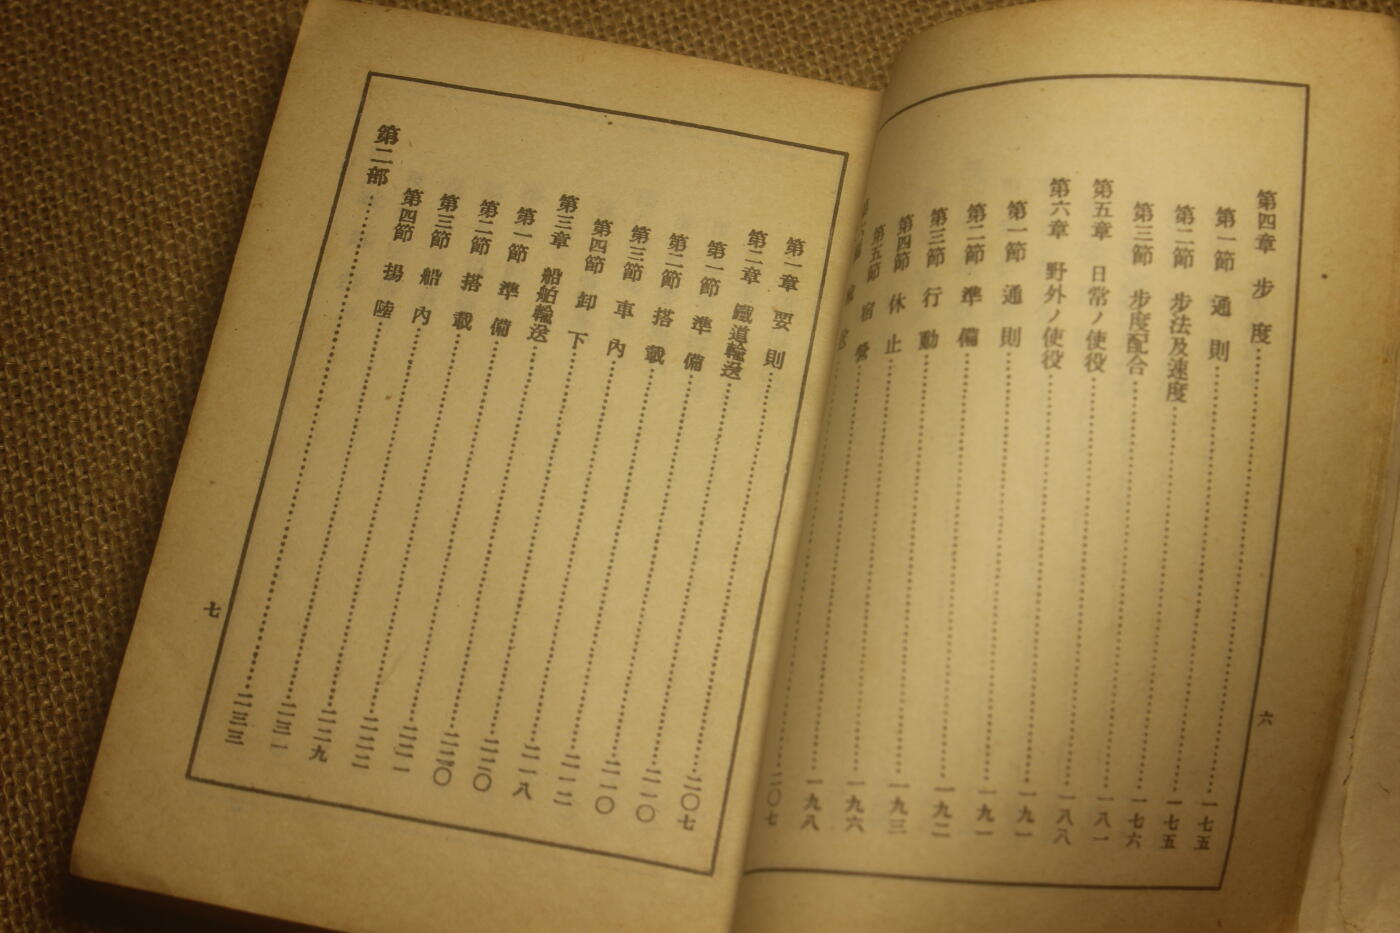 第四章 步度………一七五
第一節 通則………一七五
第二節 步法及速度………一七六
第三節 步度配合………一八一
第五章 日常ノ使役………一八八
第六章 野外ノ使役………一九一
第一節 通則………一九一
第二節 準備………一九二
第三節 行動………一九三
第四節 休止………一九六
第五節 宿營………一九八
………二〇七
六
第一章 要則………二〇七
第二章 鐵道輸送………二一〇
第一節 準備………二一〇
第二節 搭載………二一二
第三節 車內………二一八
第四節 卸下………二二〇
第三章 船舶輸送………二二〇
第一節 準備………二二一
第二節 搭載………二二二
第三節 船內………二二九
第四節 揚陸………二三一
第二部………二三三
七